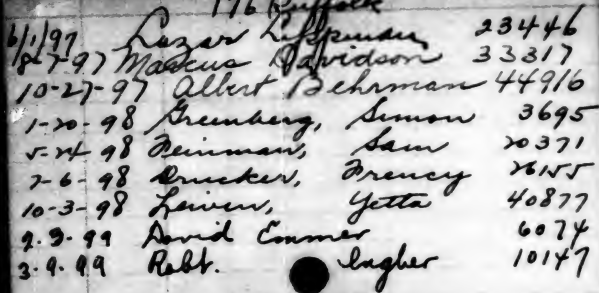 176 Suffolk
6/1/97 Lazar Lippman 23446
8-7-97 Marcus Davidson 33317
10-27-97 Albert Behrman 44916
1-20-98 Greenberg, Simon 3695
5-24-98 Feinman, Sam 20371
7-6-98 Drucker, Frency 26155
10-3-98 Leiven, Yetta 40877
2.9.99 David Emmer 6074
3.9.99 Robt. Ingber 10147